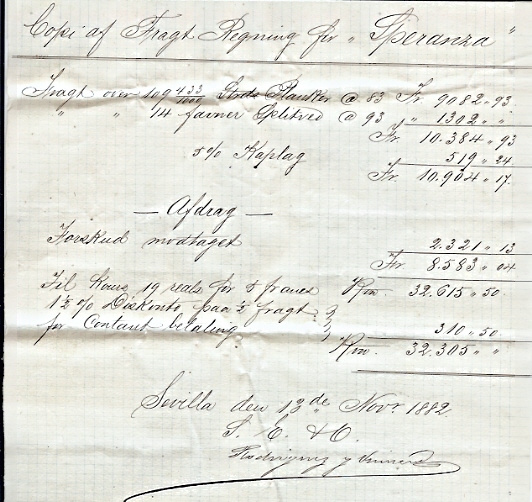 Copi af Fragt Regning for „ Speranza "
Fragt over 109 433/1000 Stds Planker @ 83 Fr. 9082 „ 93
„ „ 14 famner Splitved @ 93 „ 1302 „ „
Fr. 10.384 „ 93
5% Kaplag 519 „ 24
Fr. 10.904 „ 17.
— Afdrag —
Forskud modtaget 2.321 „ 13
Fr. 8.583 „ 04
Til Kours 19 reals for 5 francs Rvn. 32.615 „ 50.
1½ % Diskonto paa ⅔ fragt
for Contant betaling 310 „ 50
Rvn. 32.305 „ „
Sevilla den 13de Novr 1882
S. E. & O.
Rodriguez y